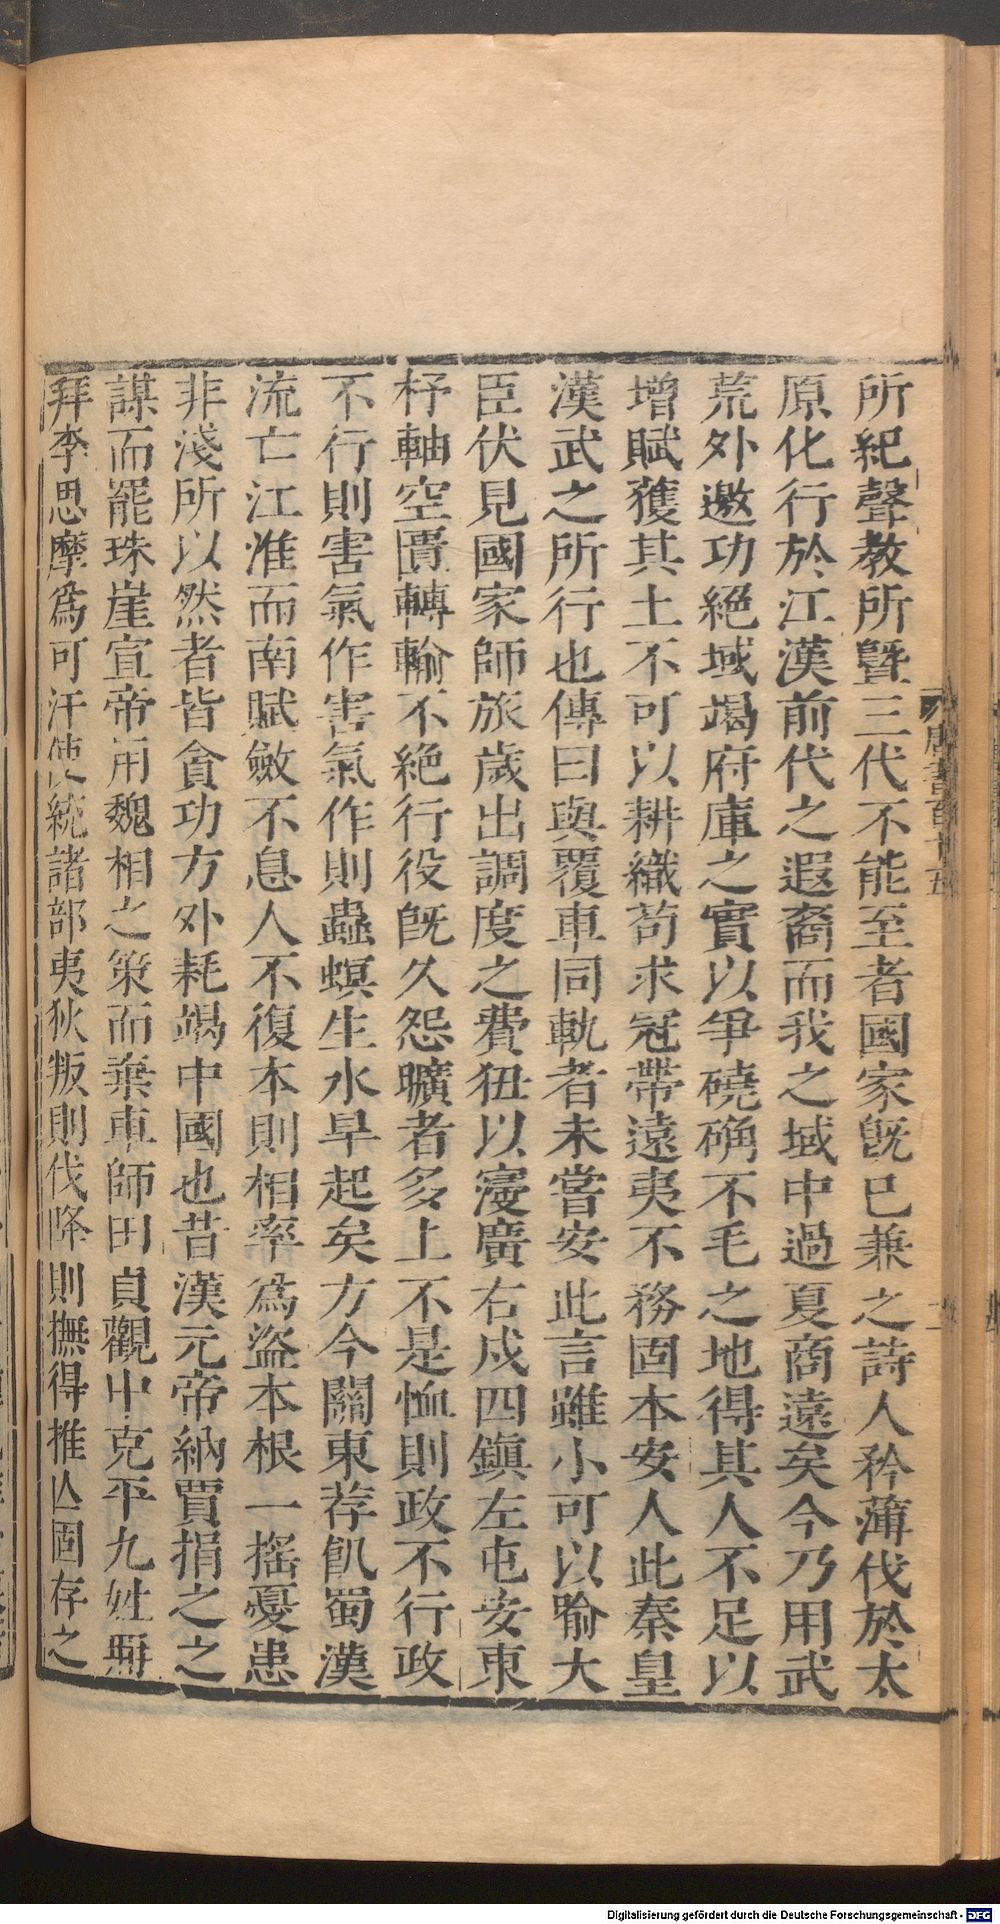 所紀聲教所曁三代不能至者國家旣已兼之詩人矜薄伐於太
原化行於江漢前代之遐裔而我之域中過夏商遠矣今乃用武
荒外邀功絕域竭府庫之實以爭磽确不毛之地得其人不足以
增賦獲其土不可以耕織苟求冠帶遠夷不務固本安人此秦皇
漢武之所行也傳曰與覆車同軌者未嘗安此言雖小可以喻大
臣伏見國家師旅歲出調度之費狃以寖廣右戍四鎭左屯安東
杼軸空匱轉輸不絕行役旣久怨曠者多上不是恤則政不行政
不行則害氣作害氣作則蟲螟生水旱起矣方今關東荐飢蜀漢
流亡江淮而南賦斂不息人不復本則相率爲盜本根一搖憂患
非淺所以然者皆貪功方外耗竭中國也昔漢元帝納賈捐之之
謀而罷珠崖宣帝用魏相之策而棄車師田貞觀中克平九姓冊
拜李思摩爲可汗使統諸部夷狄叛則伐降則撫得推亾固存之
唐書百十五
Digitalisierung gefördert durch die Deutsche Forschungsgemeinschaft - DFG